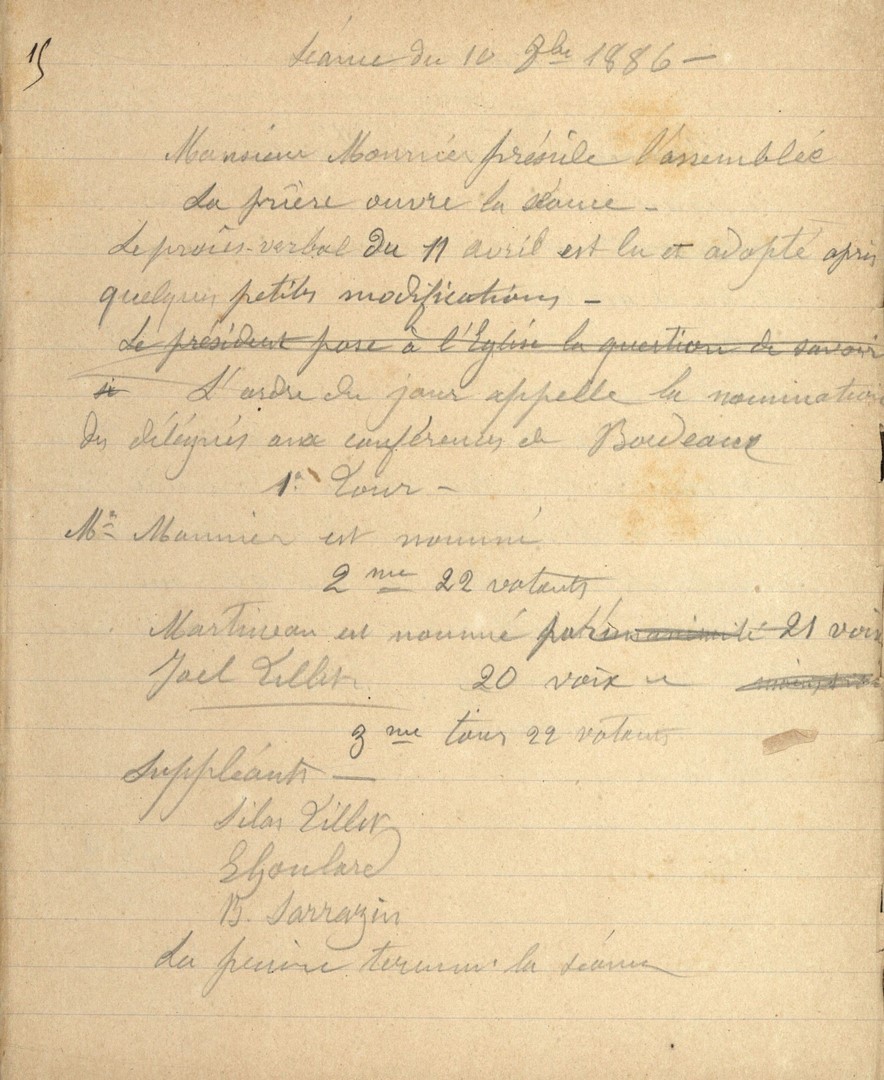 15
Séance du 10 8bre 1886 —
Monsieur Mounier préside l'assemblée
La prière ouvre la séance —
Le procès-verbal du 11 avril est lu et adopté après
quelques petites modifications —
Le président pose à l'Eglise la question de savoir
si L'ordre du jour appelle la nomination
des délégués aux conférences de Bordeaux
1er Tour —
Mr Mounier est nommé
2 me 22 votants
Martineau est nommé par unanimité 21 voix
Joël Lillet 20 voix
3 me tour 22 votants
Suppléants —
Silas Lillet
E Goulard
B. Sarrazin
La prière termine la séance